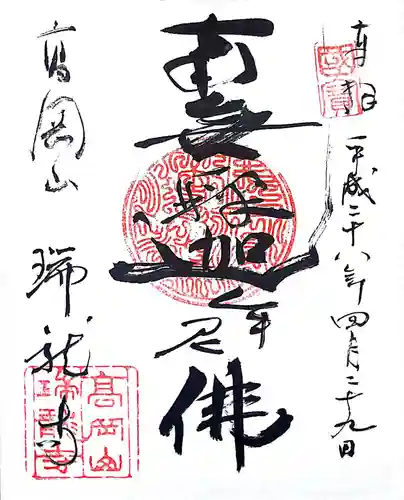 奉拝 平成二十八年四月二十九日
國寶
南無釋迦牟尼佛
高岡山
瑞龍寺
高岡山
瑞龍寺